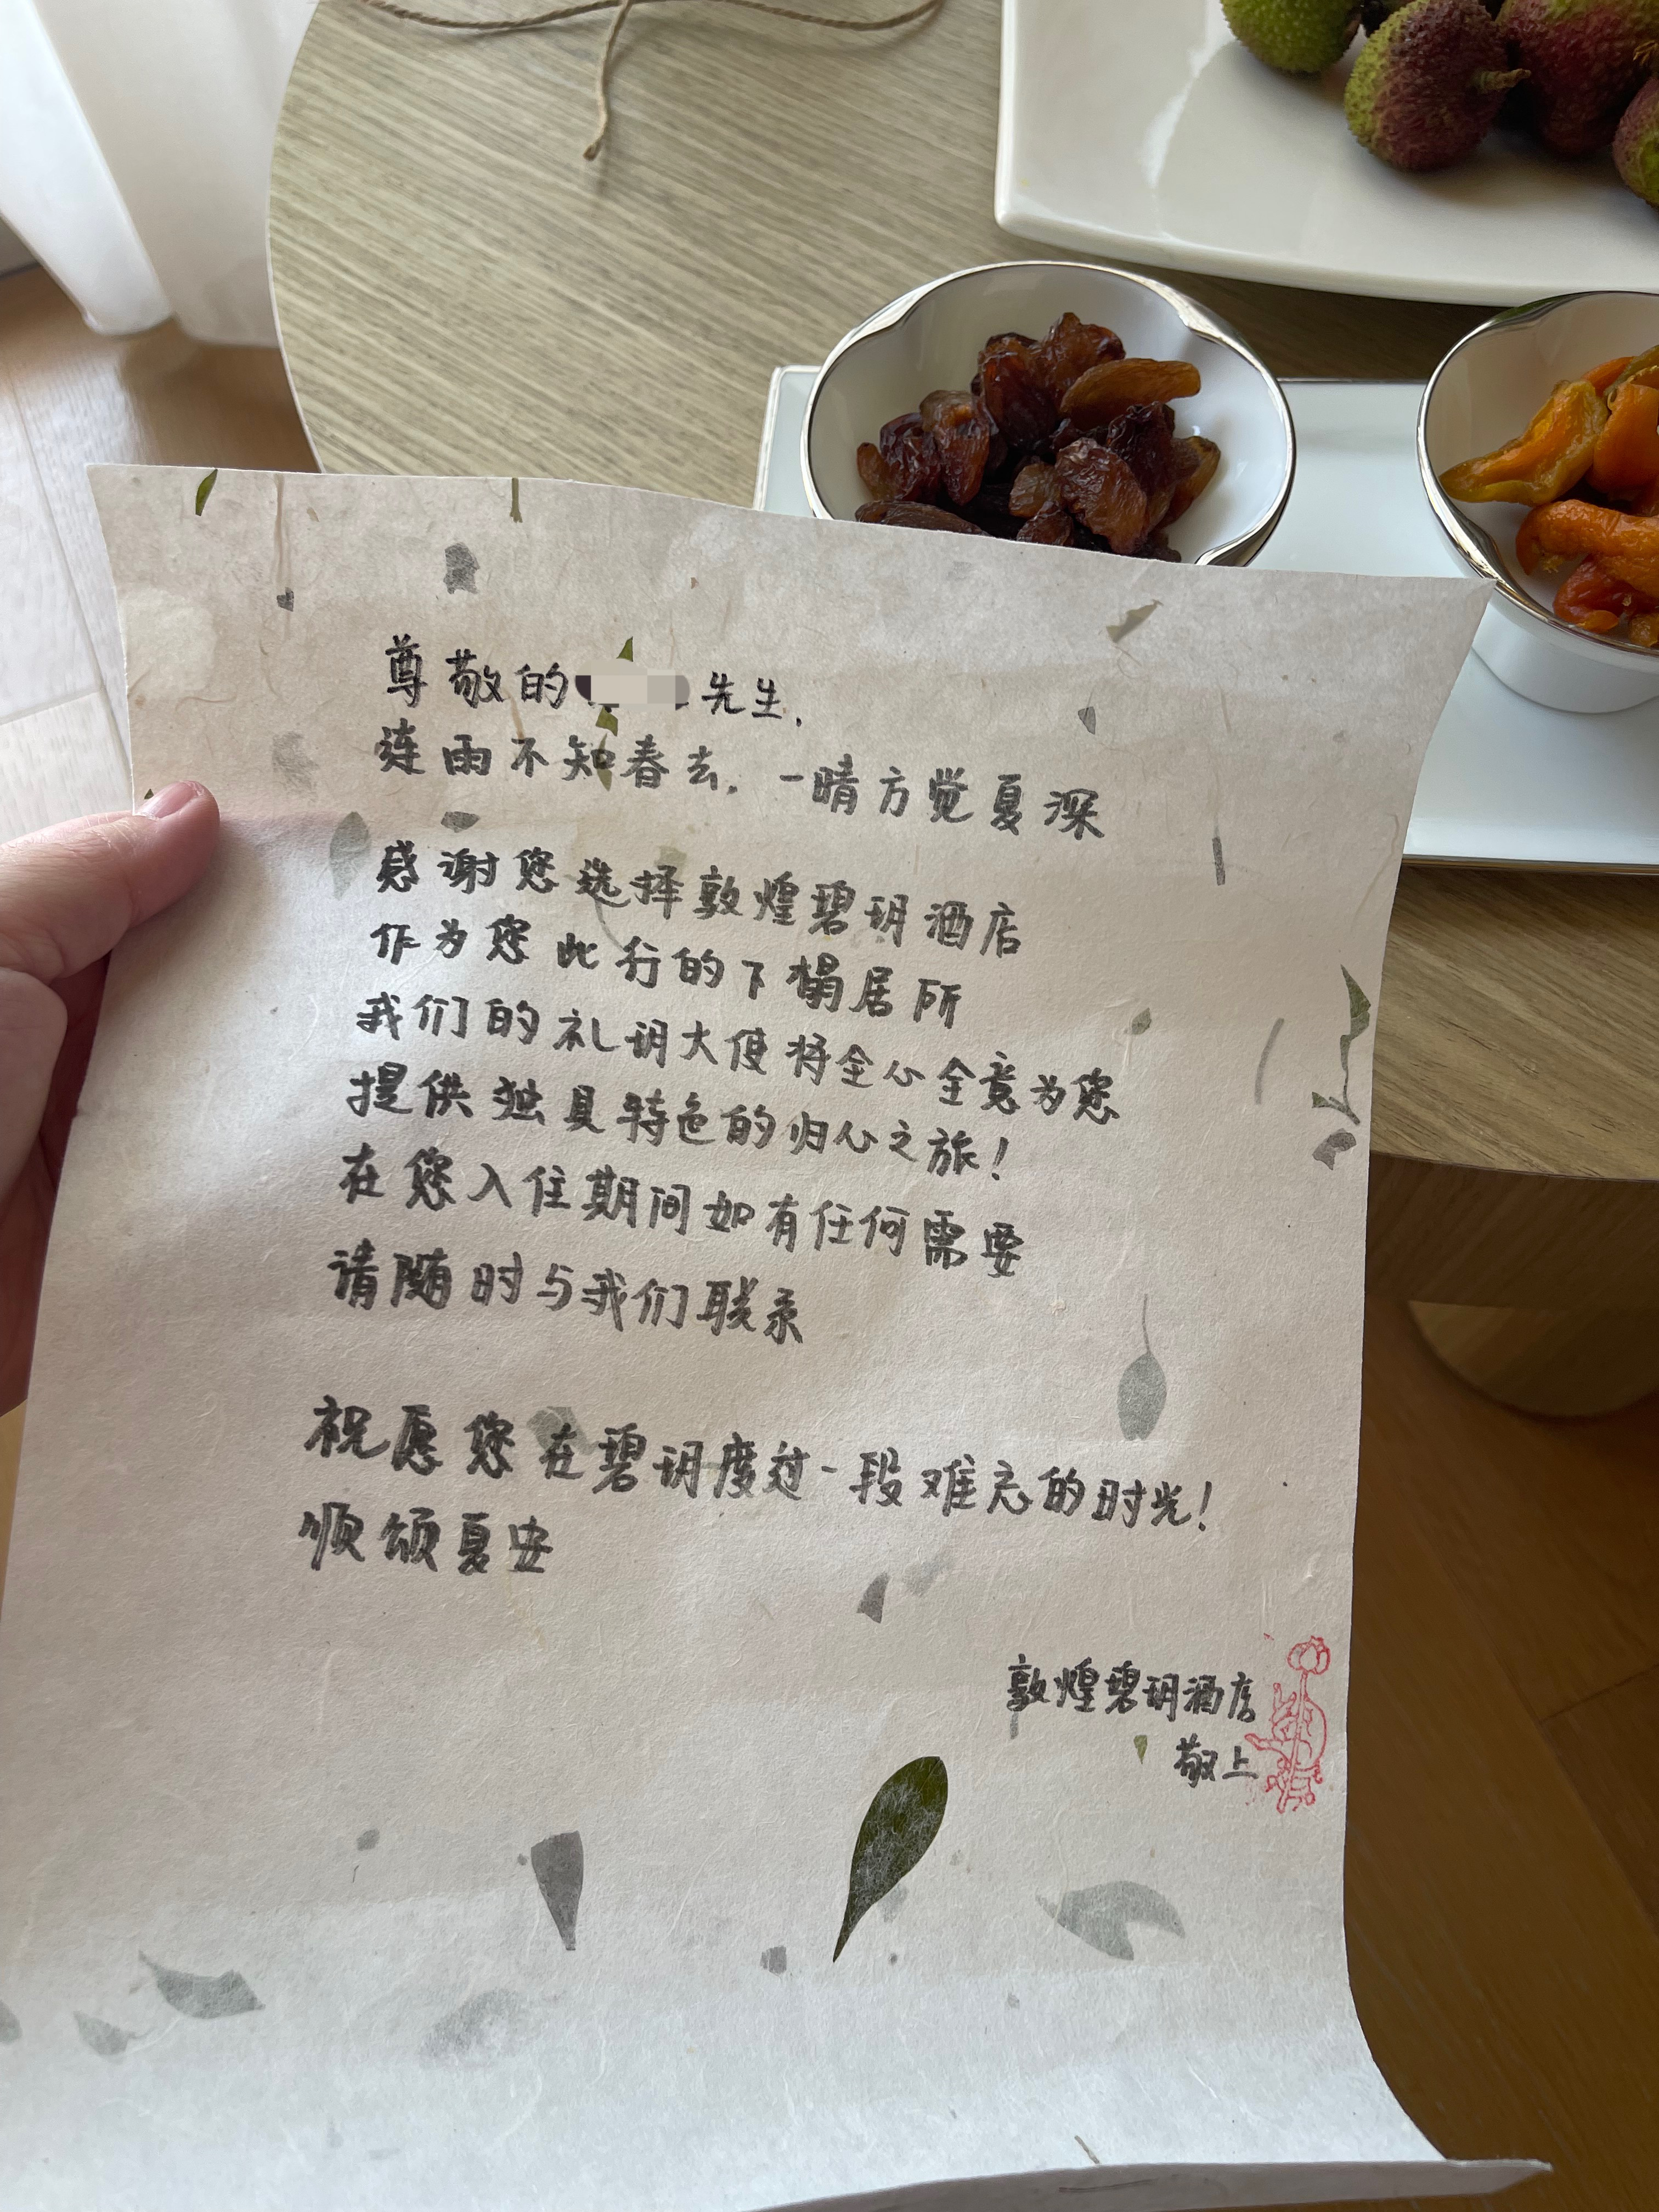 尊敬的 先生,
连雨不知春去,一晴方觉夏深
感谢您选择敦煌碧玥酒店
作为您此行的下榻居所
我们的礼玥大使将全心全意为您
提供独具特色的归心之旅!
在您入住期间如有任何需要
请随时与我们联系
祝愿您在碧玥度过一段难忘的时光!
顺颂夏安
敦煌碧玥酒店
敬上